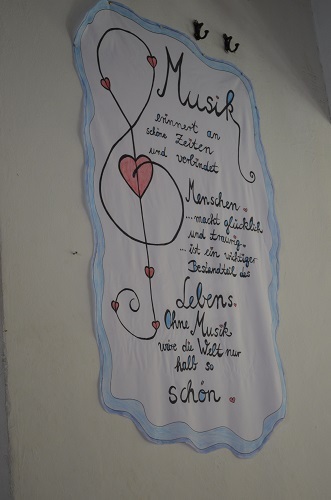 Musik
erinnert an
schöne Zeiten
und verbindet
Menschen.
...macht glücklich
und traurig.
...ist ein wichtiger
Bestandteil des
Lebens.
Ohne Musik
wäre die Welt nur
halb so
schön